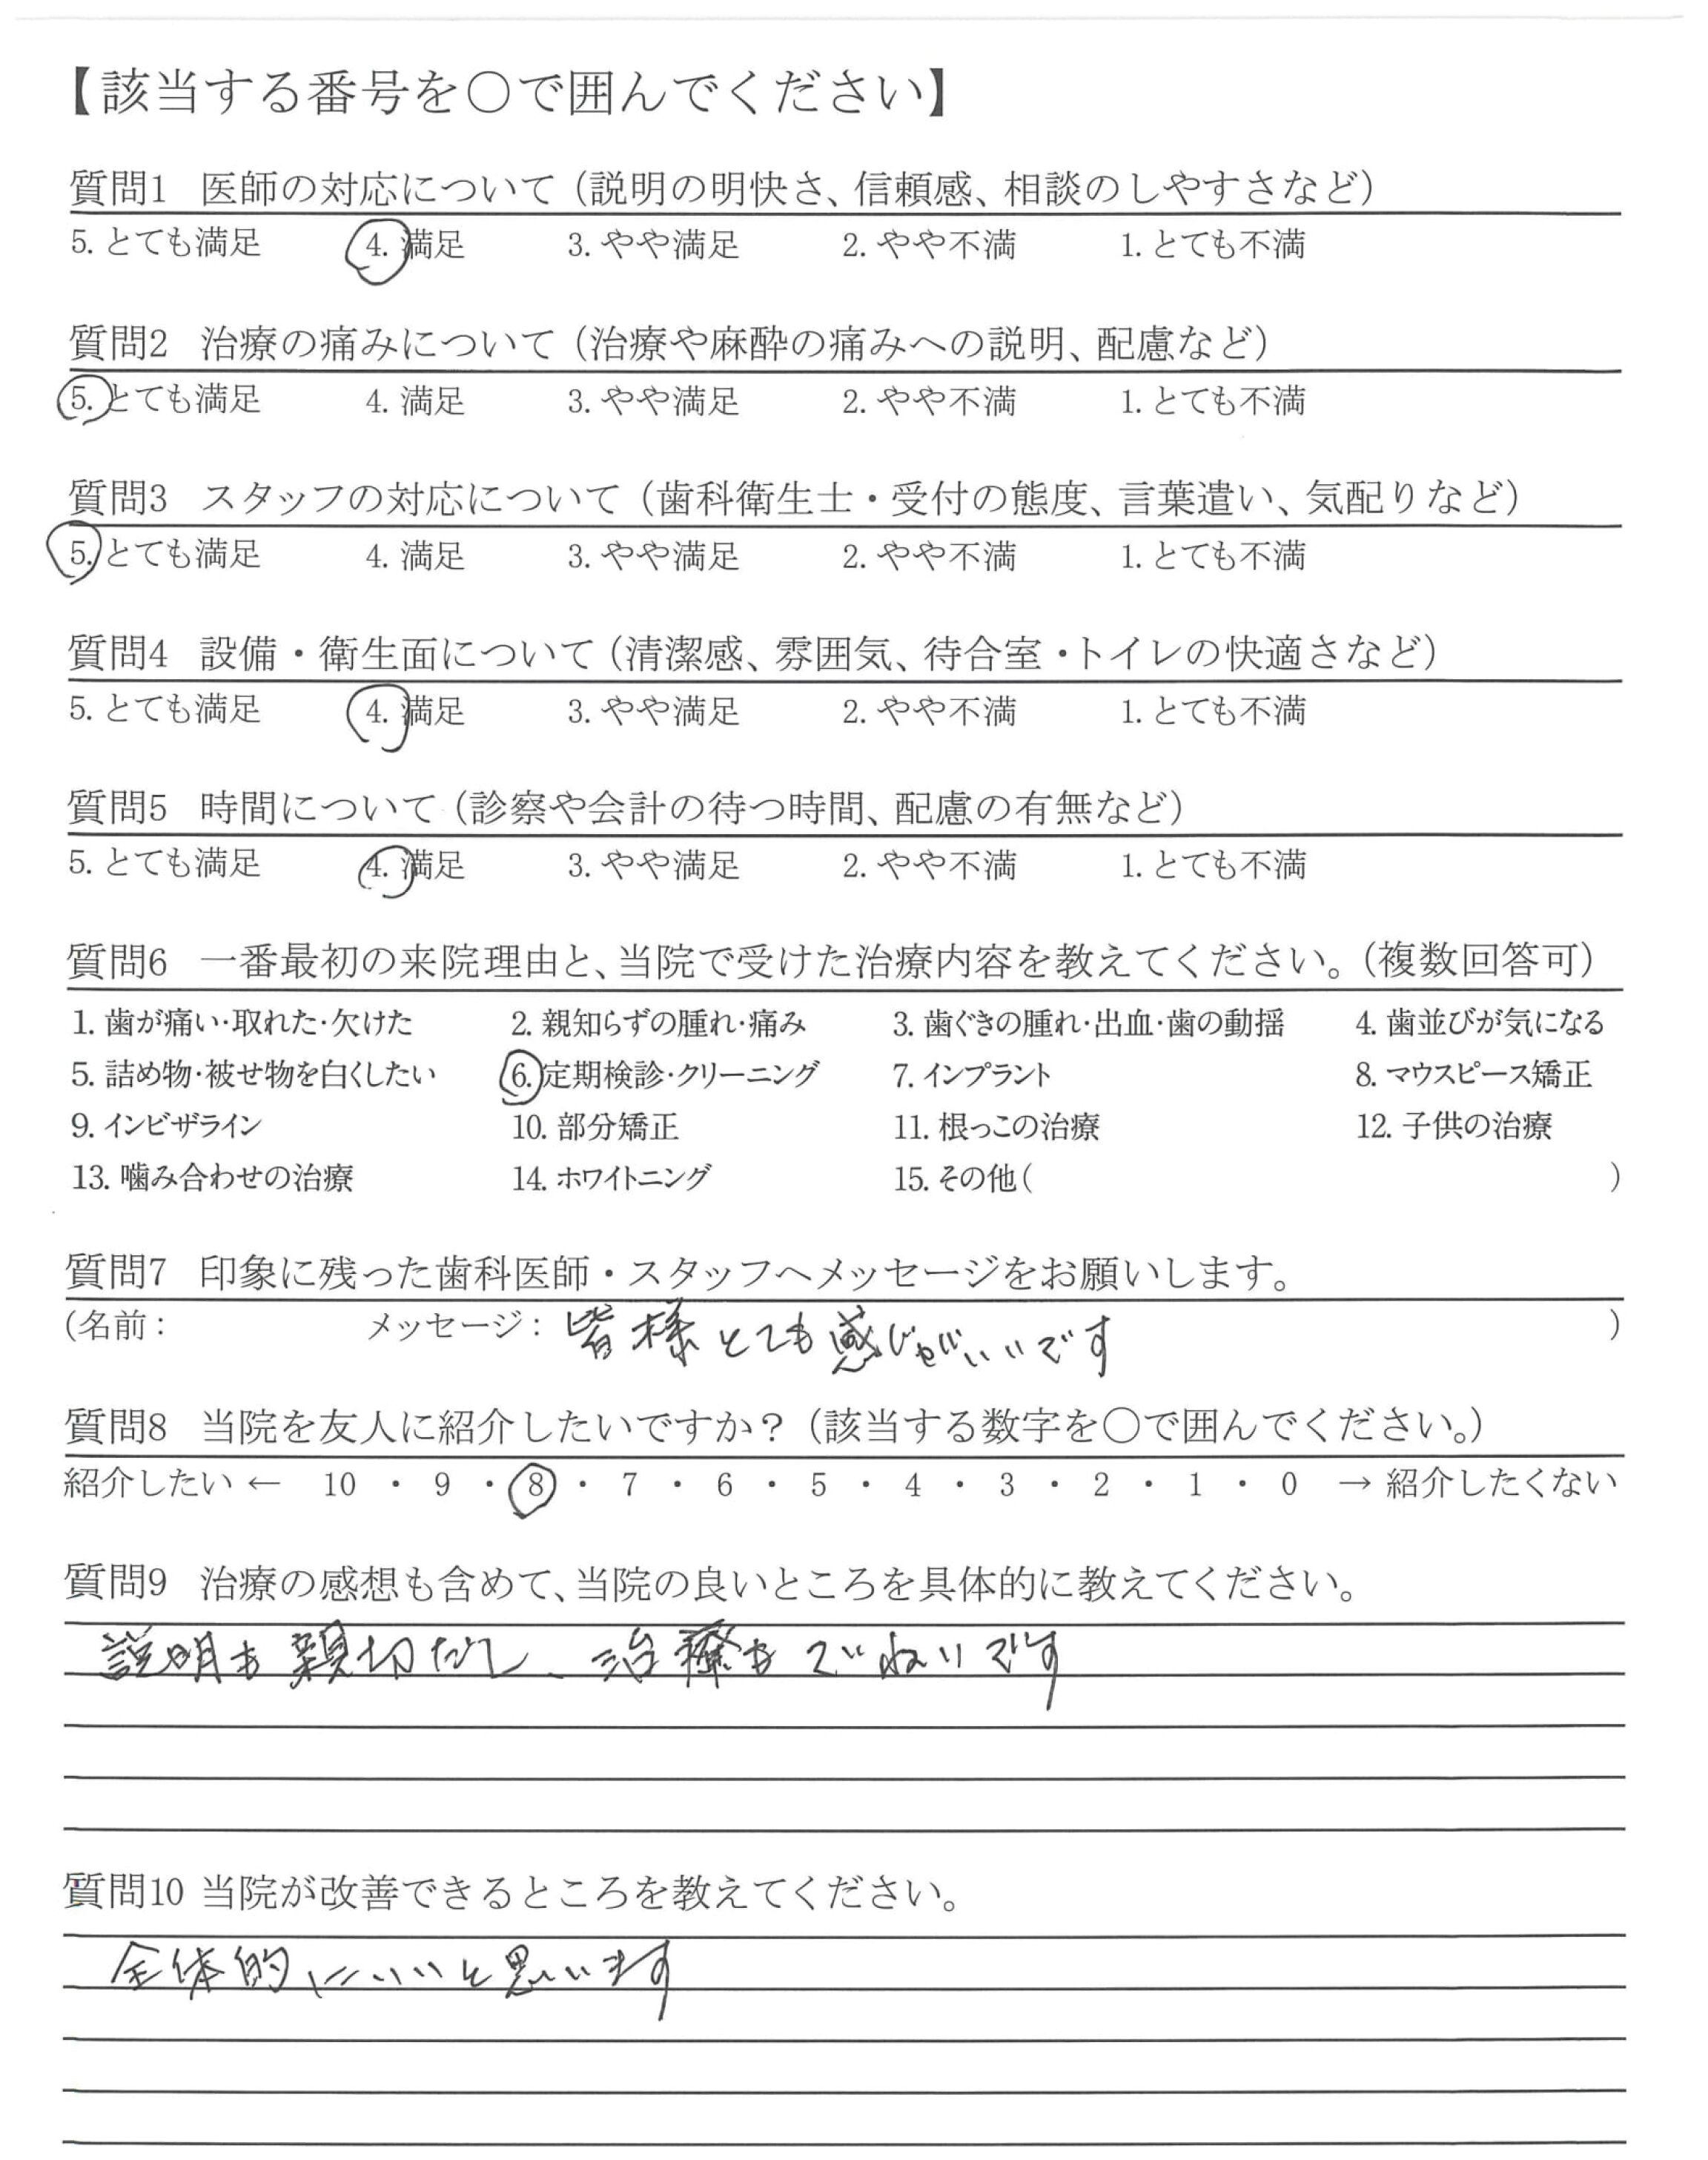 【該当する番号を〇で囲んでください】
質問1 医師の対応について（説明の明快さ、信頼感、相談のしやすさなど）
5. とても満足 4. 満足 3. やや満足 2. やや不満 1. とても不満
質問2 治療の痛みについて（治療や麻酔の痛みへの説明、配慮など）
5. とても満足 4. 満足 3. やや満足 2. やや不満 1. とても不満
質問3 スタッフの対応について（歯科衛生士・受付の態度、言葉遣い、気配りなど）
5. とても満足 4. 満足 3. やや満足 2. やや不満 1. とても不満
質問4 設備・衛生面について（清潔感、雰囲気、待合室・トイレの快適さなど）
5. とても満足 4. 満足 3. やや満足 2. やや不満 1. とても不満
質問5 時間について（診察や会計の待つ時間、配慮の有無など）
5. とても満足 4. 満足 3. やや満足 2. やや不満 1. とても不満
質問6 一番最初の来院理由と、当院で受けた治療内容を教えてください。（複数回答可）
1. 歯が痛い・取れた・欠けた 2. 親知らずの腫れ・痛み 3. 歯ぐきの腫れ・出血・歯の動揺 4. 歯並びが気になる
5. 詰め物・被せ物を白くしたい 6. 定期検診・クリーニング 7. インプラント 8. マウスピース矯正
9. インビザライン 10. 部分矯正 11. 根っこの治療 12. 子供の治療
13. 噛み合わせの治療 14. ホワイトニング 15. その他（ ）
質問7 印象に残った歯科医師・スタッフへメッセージをお願いします。
（名前： メッセージ：皆様とても感じがいいです ）
質問8 当院を友人に紹介したいですか？（該当する数字を〇で囲んでください。）
紹介したい ← 10 ・ 9 ・ 8 ・ 7 ・ 6 ・ 5 ・ 4 ・ 3 ・ 2 ・ 1 ・ 0 → 紹介したくない
質問9 治療の感想も含めて、当院の良いところを具体的に教えてください。
説明も親切だし、治療もていねいです
質問10 当院が改善できるところを教えてください。
全体的にいいと思います